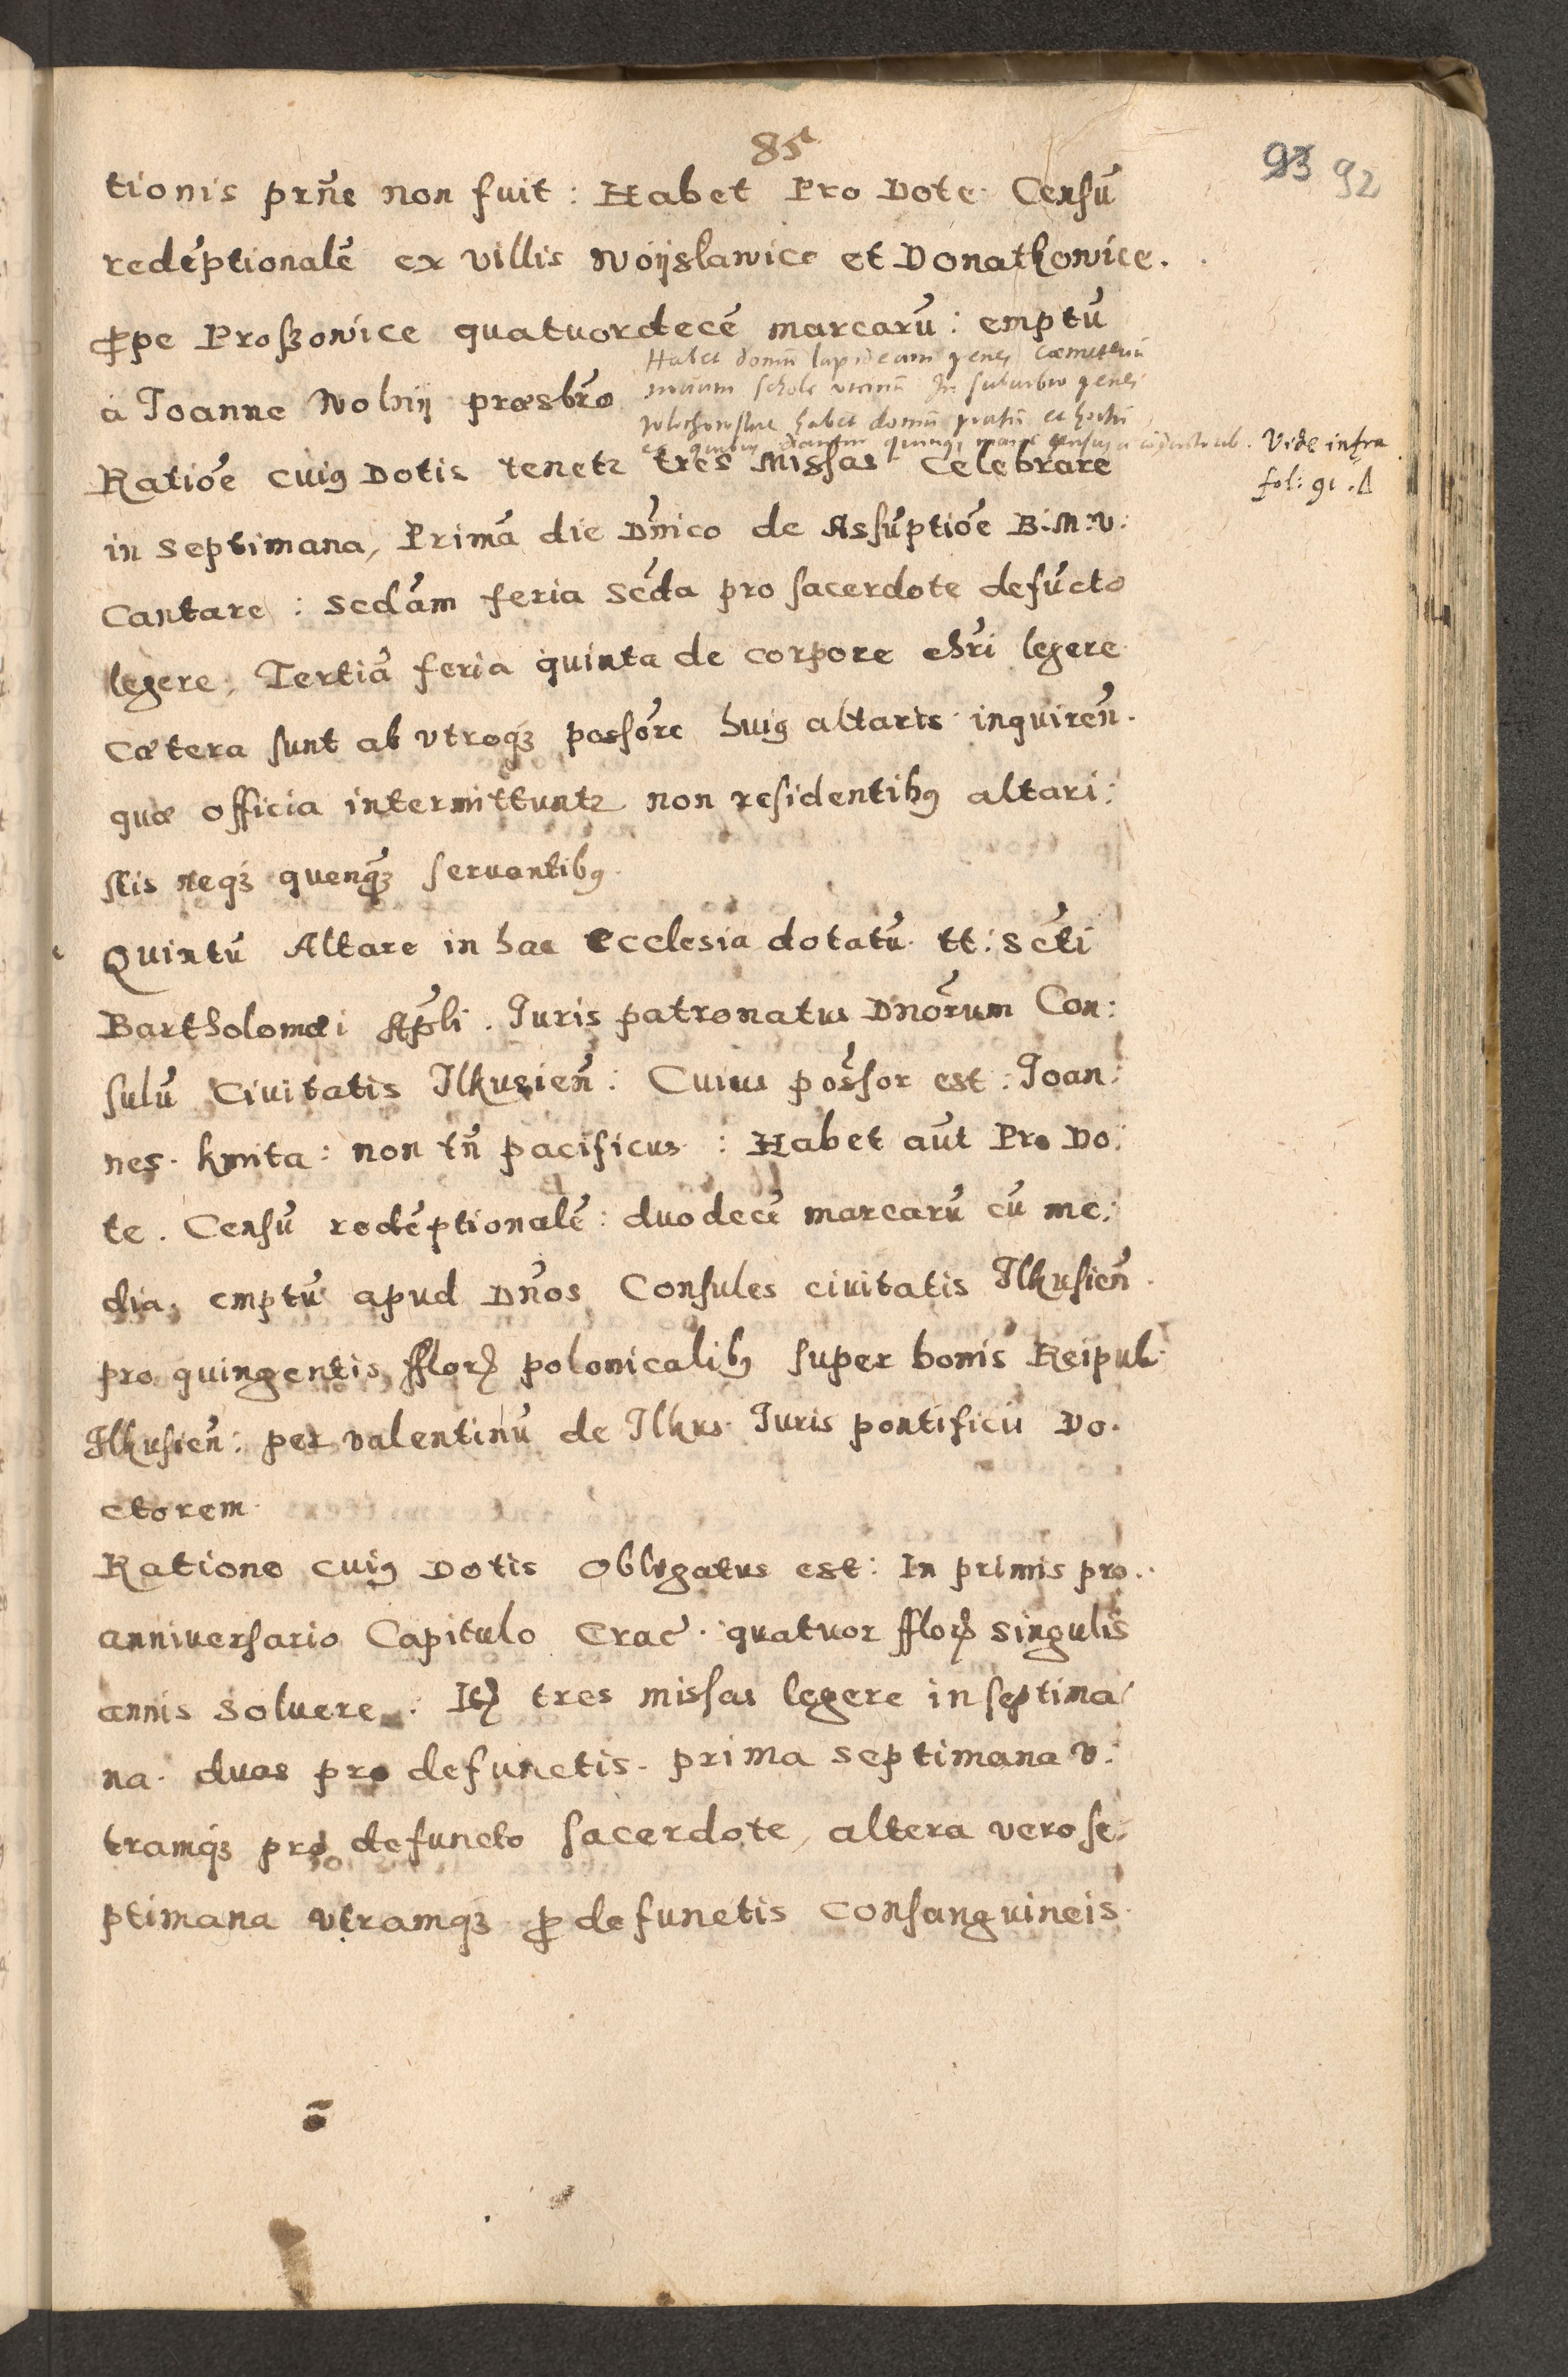 85
93 92
tionis prñe non fuit : Habet Pro Dote Censū
redēptionalē ex villis Woijslawice et Donatkowice.
ꝓpe Proszowice quatuordecē marcarū : emptū
Habet domū lapideam penes cœmeteriū
scholæ In suburbio penes
habet domū et hortū
à Joanne Wolnij præsbr̃o
Vide infra
fol: 91 . Δ
Ratiōe cuiꝰ Dotis tenetꝛ tres Missas Celebrare
in septimana, Primā die Dñico de Assūptiōe B:M:V:
Cantare : Scdām feria Scđa pro sacerdote defūcto
legere, Tertiā feria quinta de corpore chr̃i legere
Cætera sunt ab vtroqꝫ possōre huiꝰ altaris inquireñ.
quæ officia intermittuntꝛ non residentibꝰ altari:
stis neqꝫ quenq̃ꝫ servantibꝰ.
Quintū Altare in hac Ecclesia dotatū tt: Scti
Bartholomæi Apl̃i . Juris patronatus Dnōrum Con:
sulū Civitatis Ilkusieñ : Cuius pos̃sor est : Joan:
nes kmita : non tñ pacificus : Habet aūt Pro Do:
te . Censū redēptionalē : duodecē marcarū cū me:
dia, emptū apud Dños Consules civitatis Ilkusieñ.
pro quingentis fflorꝭ polonicalibꝰ super bonis Reipub:
Ilkusieñ : per valentinū de Ilkus Juris pontificii Do.
ctorem
Ratione cuiꝰ Dotis Obligatus est : In primis pro.
anniversario Capitulo Crac̃ . quatuor fflorꝭ singulis
annis solvere : Itꝫ tres missas legere in septima
na . duas pro defunctis . prima septimana v:
tramqꝫ pro defuncto sacerdote, altera vero se:
ptimana vtramqꝫ ꝓ defunctis Consanguineis